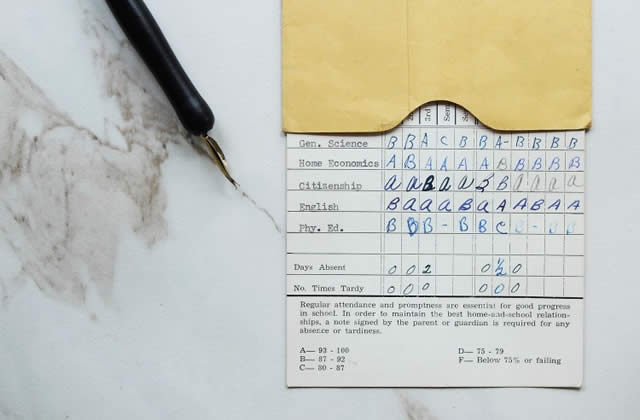 3rd
Gen. Science B B A C B B A- B B B B
Home Economics A B A A A A B B B B B
Citizenship a a B a a B a a a a
English B a a a B a A A B A A
Phy. Ed. B B B - B B C
Days Absent 0 0 2 0 ½ 0
No. Times Tardy 0 0 0 0 0 0
Regular attendance and promptness are essential for good progress
in school. In order to maintain the best home-and-school relation-
ships, a note signed by the parent or guardian is required for any
absence or tardiness.
A— 93 - 100 D— 75 - 79
B— 87 - 92 F— Below 75% or failing
C— 80 - 87